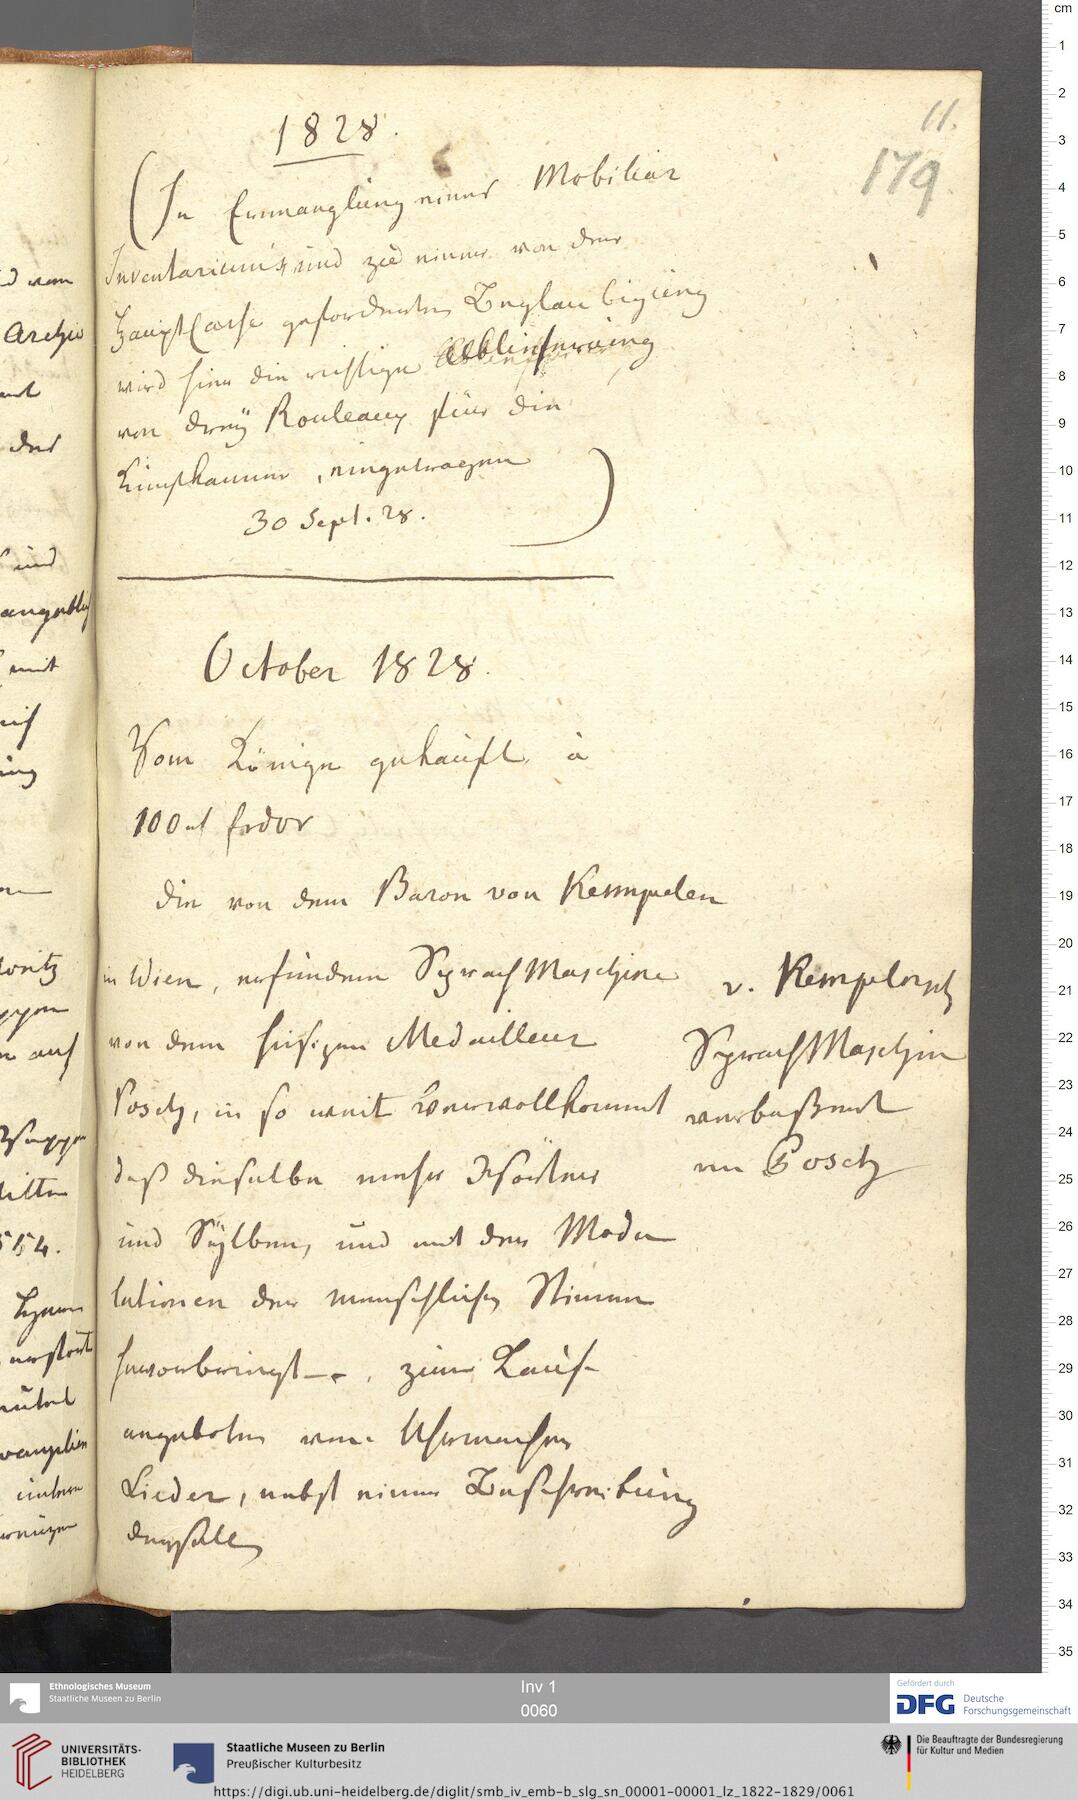 11.
179
1828.
(In Ermanglung eines Mobiliar
Inventariums und zu einer von der
Haupt Casse geforderten Beglaubigung
wird hier die richtige Ablieferung
von dreÿ Rouleaux für die
Kunstkammer, eingetragen
30 Sept. 28.)
October 1828.
Vom Könige gekauft à
100
die von dem Baron von Kempelen
in Wien, erfundene SprachMaschine
von dem hiesigen Medailleur
Posch, in so weit vervollkommt
daß dieselbe mehr Wörter
und Sÿlben, und mit den Modu
lationen der menschlichen Stimme
hervorbringt. zum Kauf
angeboten vom Uhrmacher
Lieder, nebst einer Beschreibung
derselben
v. Kempelensch
SprachMaschin
verbeßert
Posch
d von
Archiv
der
und
angeblich
mit
auf
554.
Inv 1
0060
cm
1
2
3
4
5
6
7
8
9
10
11
12
13
14
15
16
17
18
19
20
21
22
23
24
25
26
27
28
29
30
31
32
33
34
35
Ethnologisches Museum
Staatliche Museen zu Berlin
Gefördert durch
DFG Deutsche
Forschungsgemeinschaft
UNIVERSITÄTS-
BIBLIOTHEK
HEIDELBERG
Staatliche Museen zu Berlin
Preußischer Kulturbesitz
Die Beauftragte der Bundesregierung
für Kultur und Medien
https://digi.ub.uni-heidelberg.de/diglit/smb_iv_emb-b_slg_sn_00001-00001_lz_1822-1829/0061